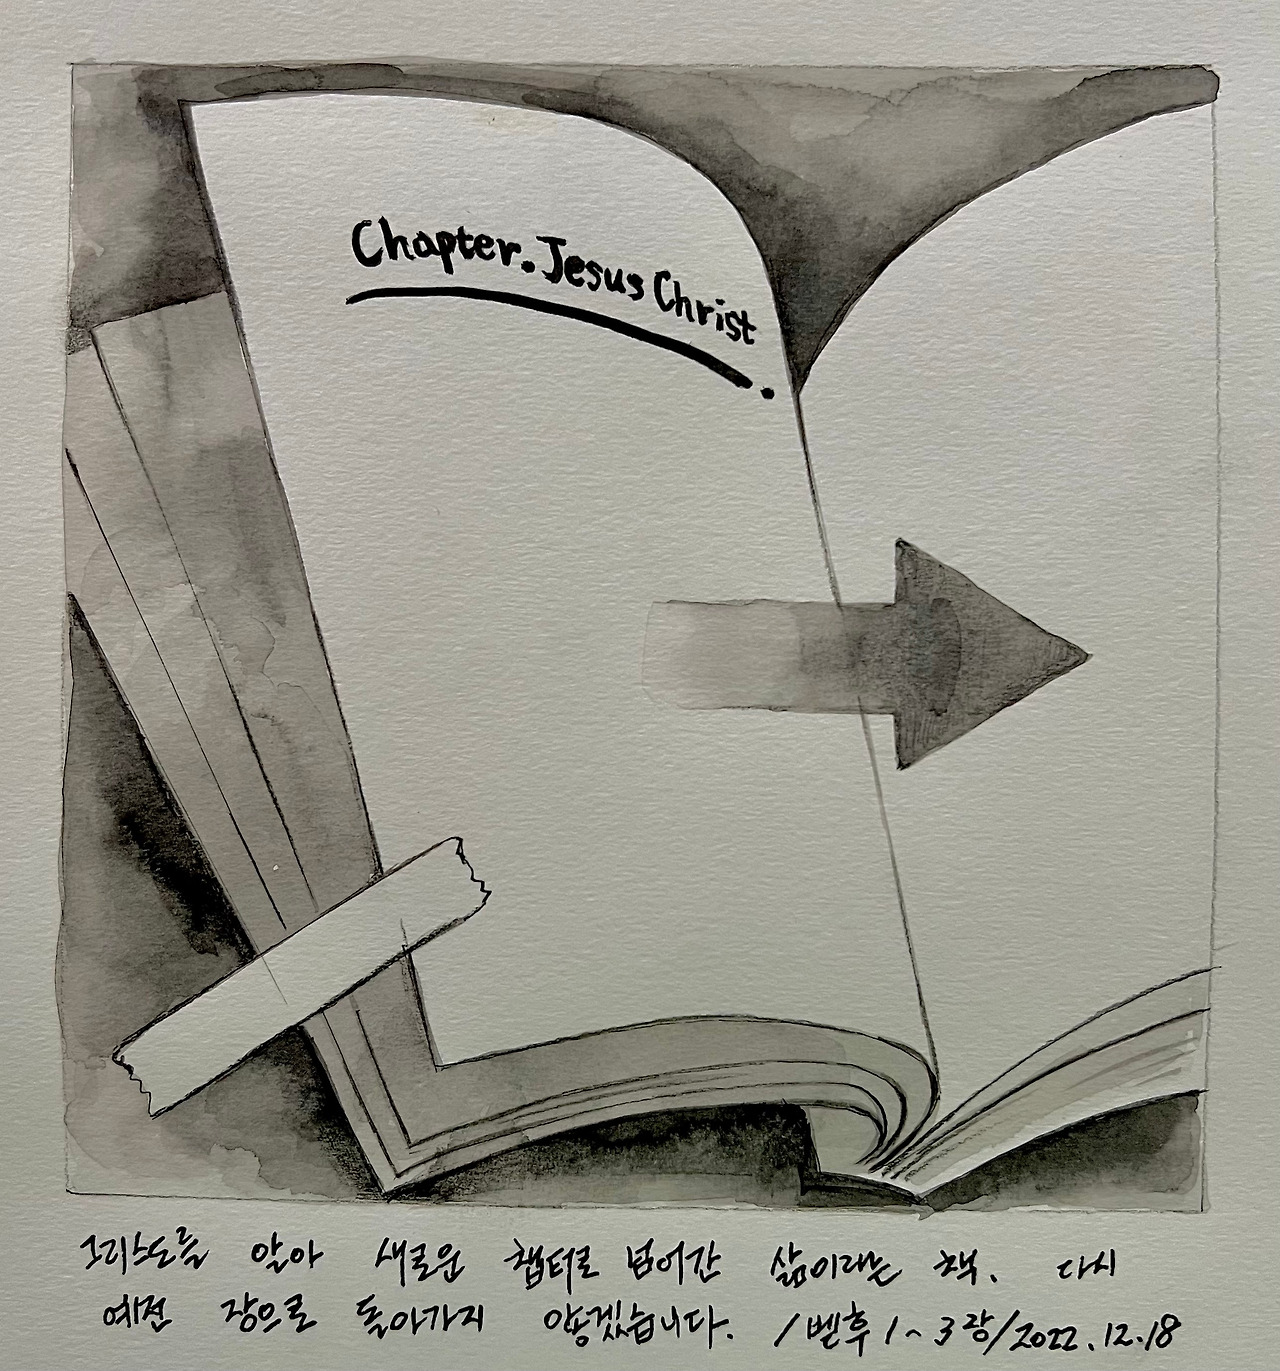 Chapter. Jesus Christ.
그리스도를 알아 새로운 챕터로 넘어간 삶이라는 책. 다시
예전 장으로 돌아가지 않겠습니다. /벧후 1~3장/2022.12.18